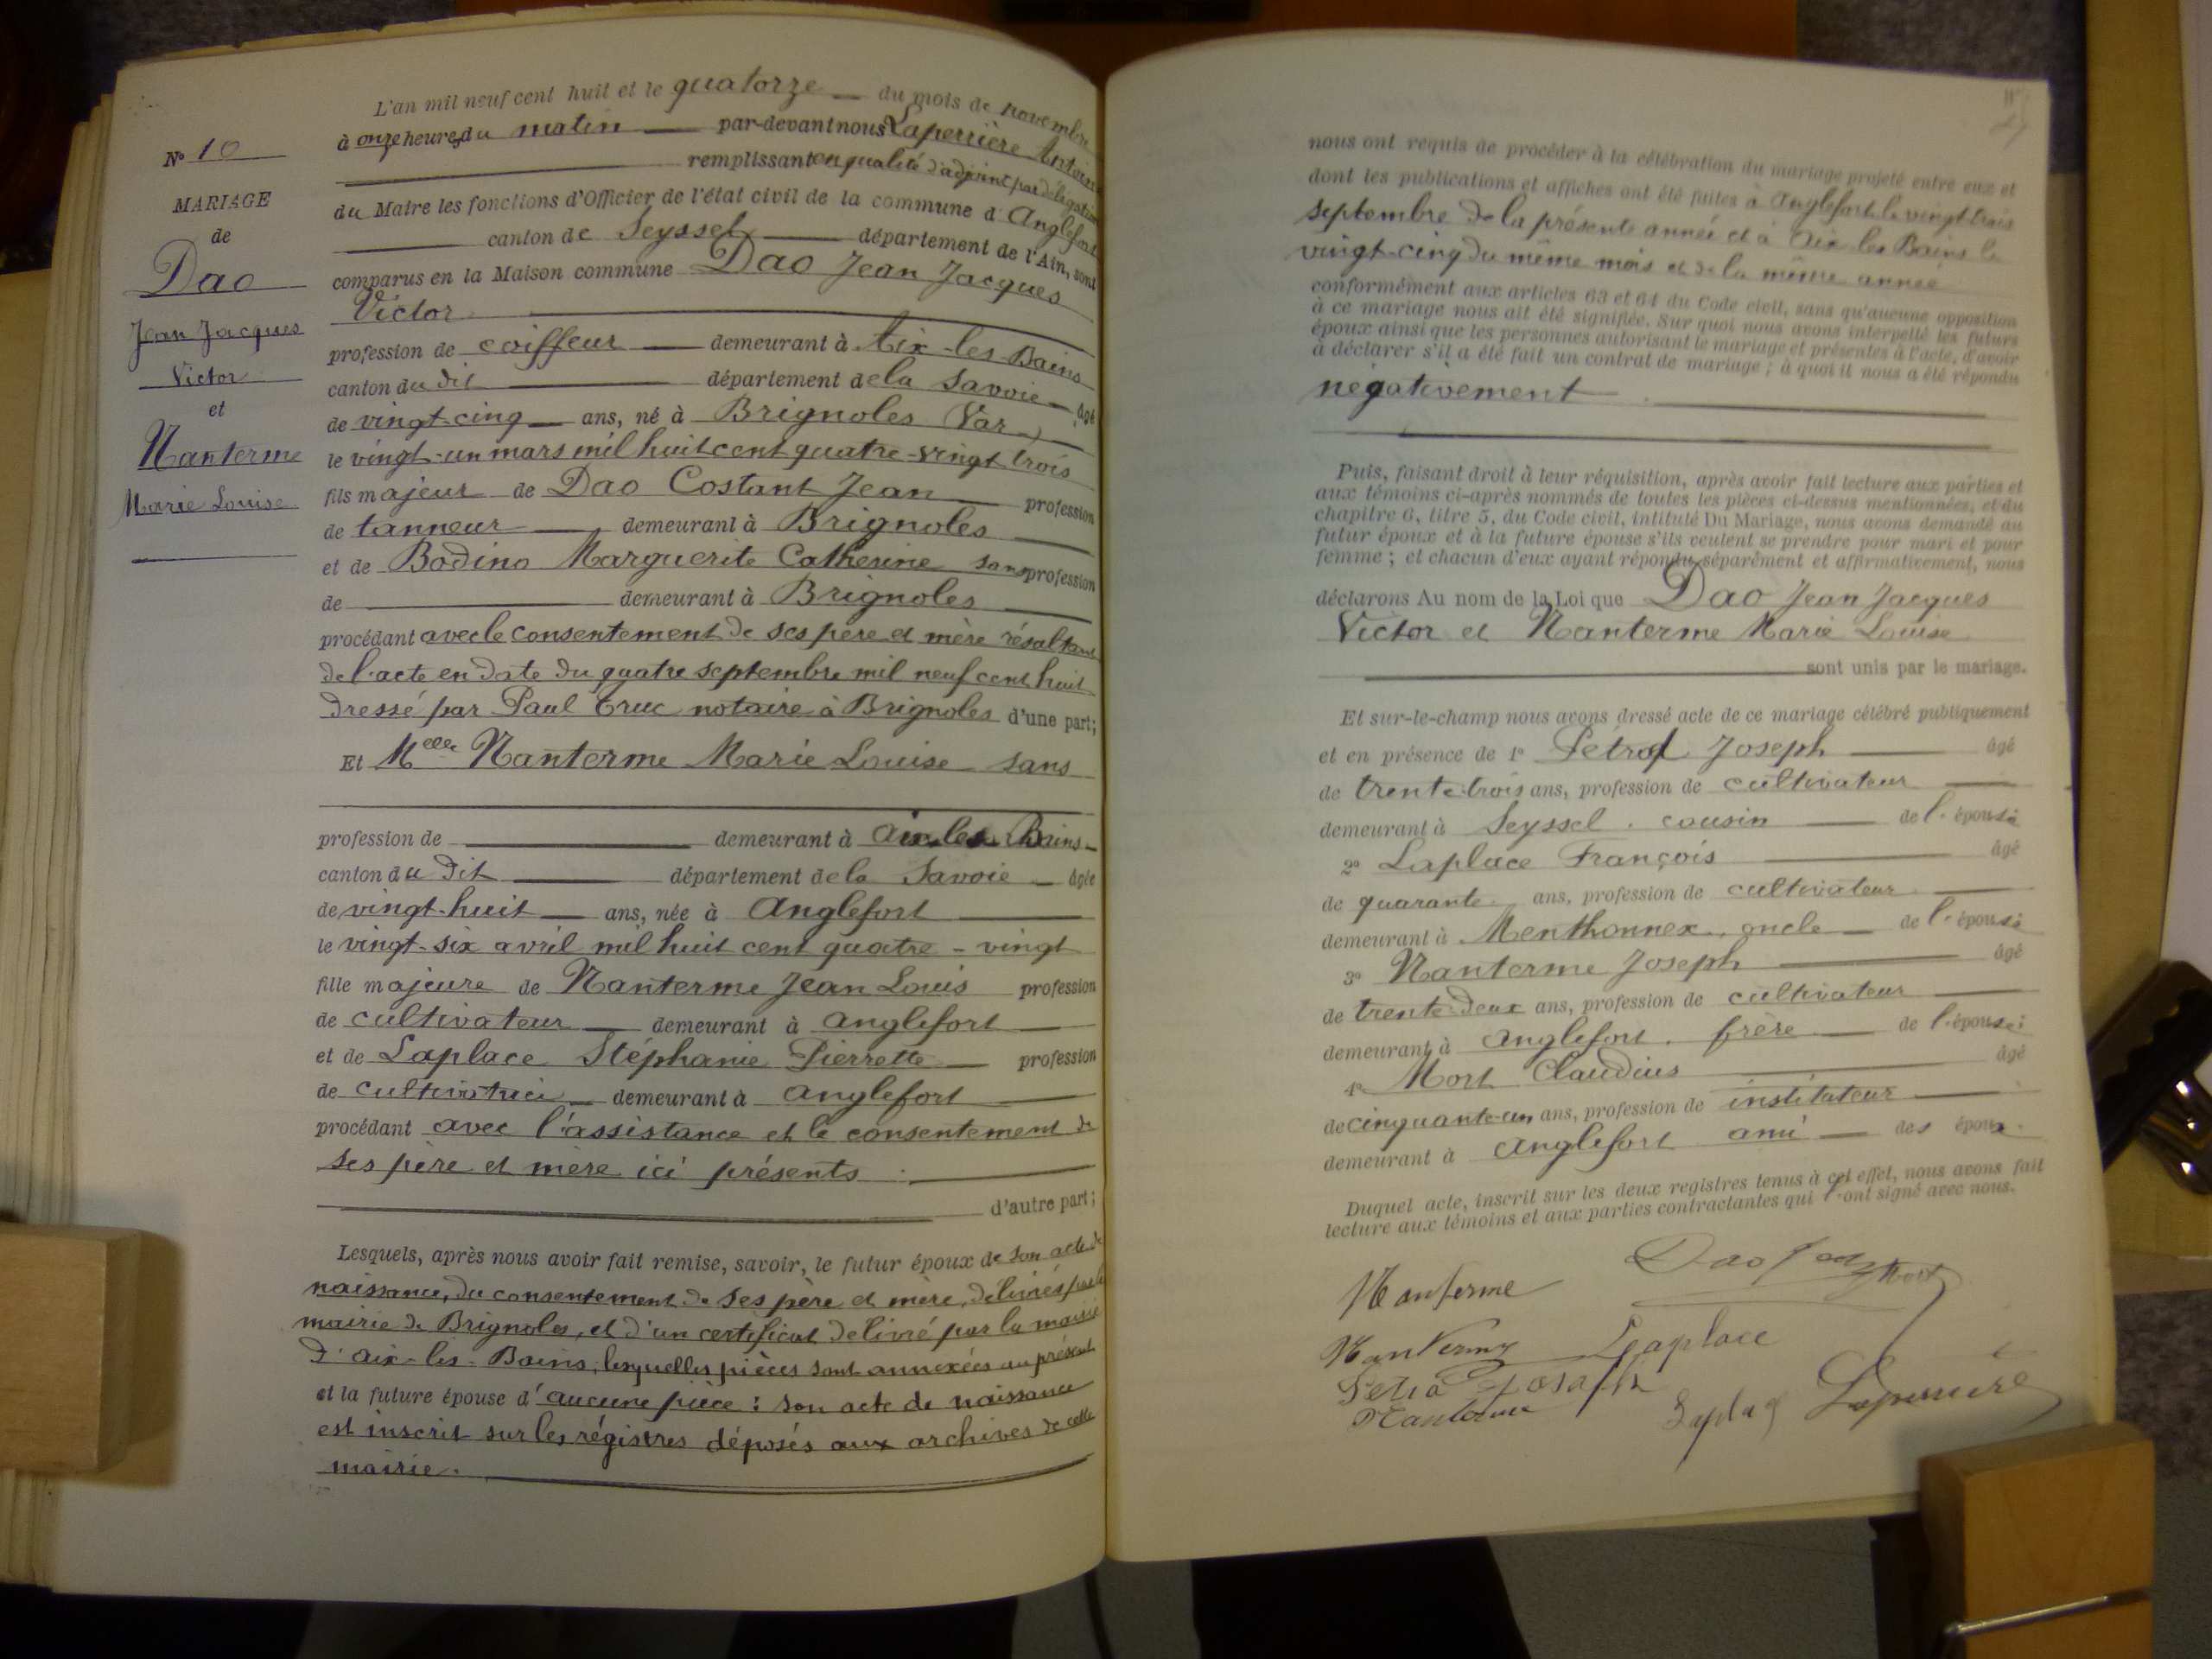 N° 10
MARIAGE
de
Dao
Jean Jacques
Victor
et
Nanterme
Marie Louise
L'an mil neuf cent huit et le quatorze du mois de novembre
à onze heures du matin par-devant nous Laperrière Antoine
remplissant en qualité d'adjoint par délégation
du Maire les fonctions d'Officier de l'état civil de la commune d'Anglefort
canton de Seyssel département de l'Ain, sont
comparus en la Maison commune Dao Jean Jacques
Victor
profession de coiffeur demeurant à Aix-les-Bains
canton du dit département de la Savoie âgé
de vingt-cinq ans, né à Brignoles (Var)
le vingt-un mars mil huit cent quatre-vingt trois
fils majeur de Dao Costant Jean profession
de tanneur demeurant à Brignoles
et de Bodino Marguerite Catherine sans profession
de demeurant à Brignoles
procédant avec le consentement de ses père et mère résultant
de l'acte en date du quatre septembre mil neuf cent huit
dressé par Paul Truc notaire à Brignoles d'une part;
Et Melle Nanterme Marie Louise sans
profession de demeurant à Aix-les-Bains
canton du dit département de la Savoie âgée
de vingt-huit ans, née à Anglefort
le vingt-six avril mil huit cent quatre-vingt
fille majeure de Nanterme Jean Louis profession
de cultivateur demeurant à Anglefort
et de Laplace Stéphanie Pierrette profession
de cultivatrice demeurant à Anglefort
procédant avec l'assistance et le consentement de
ses père et mère ici présents
d'autre part;
Lesquels, après nous avoir fait remise, savoir, le futur époux de son acte de
naissance, du consentement de ses père et mère, délivrés par la
mairie de Brignoles, et d'un certificat délivré par la mairie
d'Aix-les-Bains, lesquelles pièces sont annexées au présent
et la future épouse d'aucune pièce : son acte de naissance
est inscrit sur les régistres déposés aux archives de cette
mairie.
nous ont requis de procéder à la célébration du mariage projeté entre eux et
dont les publications et affiches ont été faites à Anglefort le vingt-trois
septembre de la présente année et à Aix les Bains le
vingt-cinq du même mois et de la même année
conformément aux articles 63 et 64 du Code civil, sans qu'aucune opposition
à ce mariage nous ait été signifiée. Sur quoi nous avons interpellé les futurs
époux ainsi que les personnes autorisant le mariage et présentes à l'acte, d'avoir
à déclarer s'il a été fait un contrat de mariage ; à quoi il nous a été répondu
négativement
Puis, faisant droit à leur réquisition, après avoir fait lecture aux parties et
aux témoins ci-après nommés de toutes les pièces ci-dessus mentionnées, et du
chapitre 6, titre 5, du Code civil, intitulé Du Mariage, nous avons demandé au
futur époux et à la future épouse s'ils veulent se prendre pour mari et pour
femme ; et chacun d'eux ayant répondu séparément et affirmativement, nous
déclarons Au nom de la Loi que Dao Jean Jacques
Victor et Nanterme Marie Louise
sont unis par le mariage.
Et sur-le-champ nous avons dressé acte de ce mariage célébré publiquement
et en présence de 1° Joseph âgé
de trente-trois ans, profession de cultivateur
demeurant à Seyssel . cousin de l'épouse
2° Laplace François âgé
de quarante ans, profession de cultivateur
demeurant à Menthonnex, oncle de l'épouse
3° Nanterme Joseph âgé
de trente-deux ans, profession de cultivateur
demeurant à Anglefort, frère de l'épouse
4° Mort Claudius âgé
de cinquante-un ans, profession de instituteur
demeurant à Anglefort ami des époux
Duquel acte, inscrit sur les deux registres tenus à cet effet, nous avons fait
lecture aux témoins et aux parties contractantes qui l'ont signé avec nous.
Dao
Mort
Nanterme
Nanterme Laplace
Joseph
Laperrière